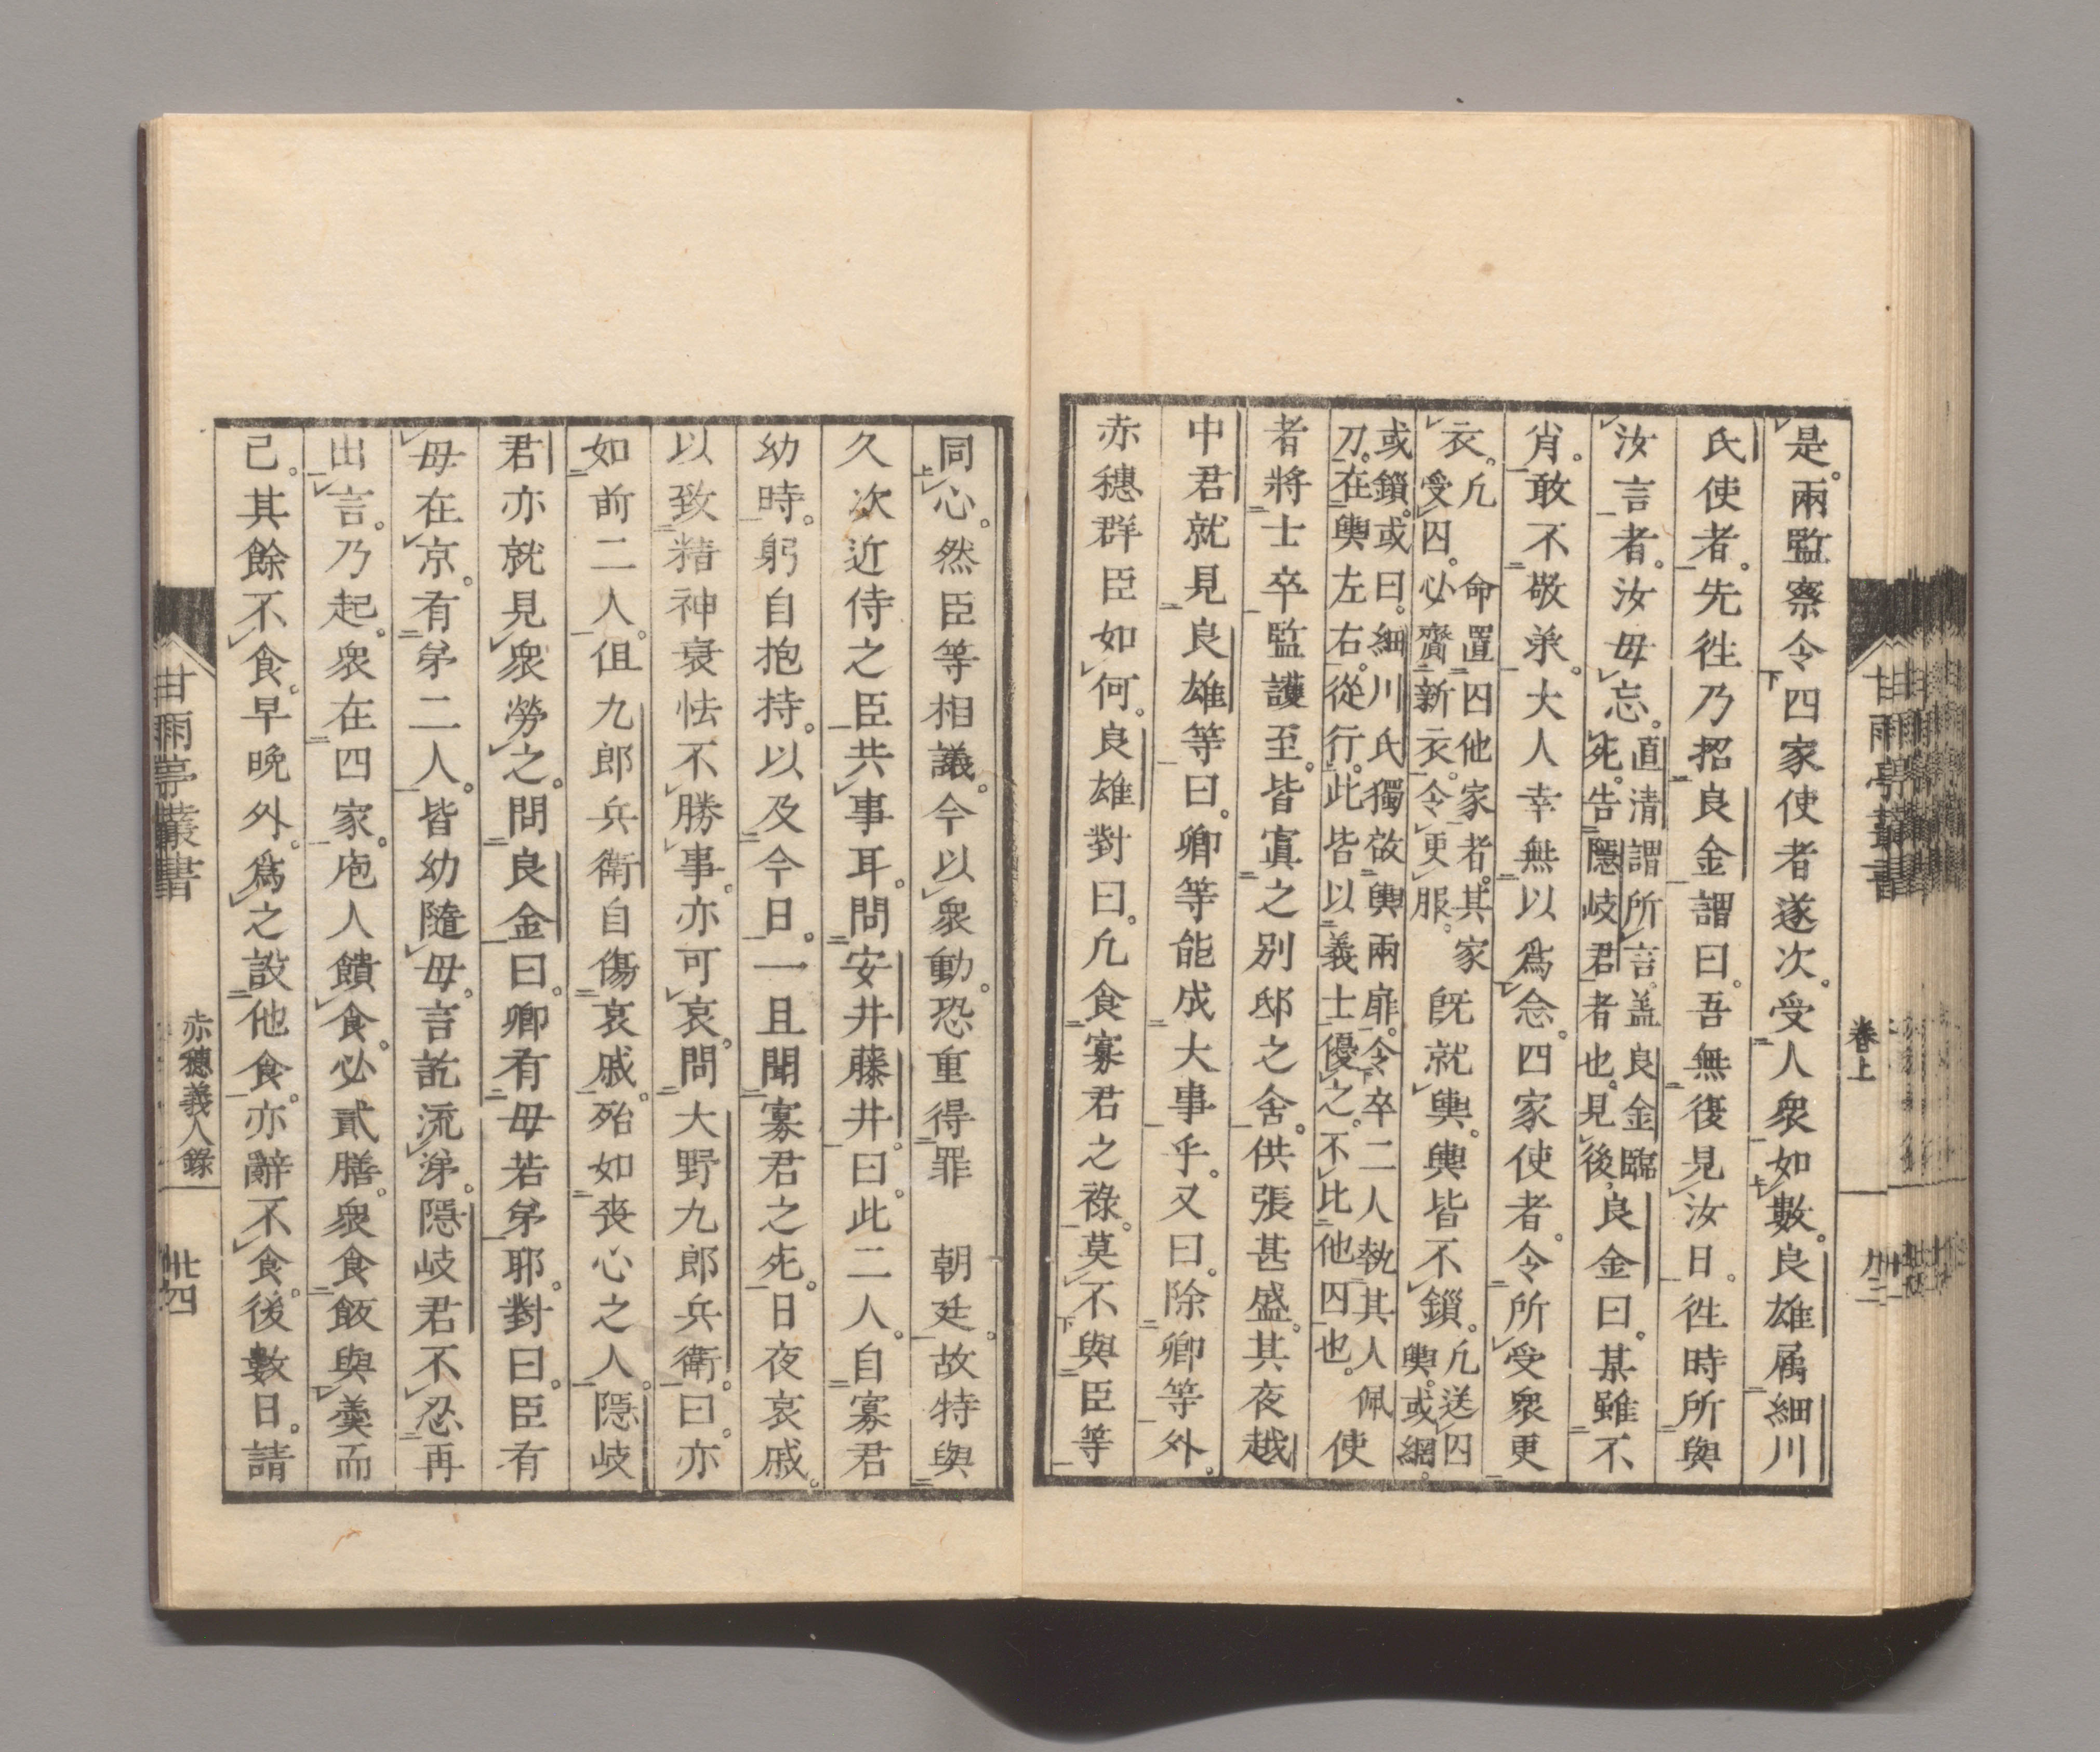 是。兩監察令四家使者遂次。受人衆如數。良雄属細川
氏使者。先徃乃招良金謂曰。吾無復見汝日。徃時所與
汝言者。汝毋忘。直清謂所言。盖良金臨
死。告隱岐君者也。見後、良金曰。某雖不
肖。敢不敬承。大人幸無以爲念。四家使者。令所受衆更
衣。凡命置囚他家者。其家
受囚。必齎新衣。令更服。既就輿。輿皆不鎖。凡送囚
輿。或網。
或鎖。或曰。細川氏獨啟輿兩扉。令卒二人執其人佩
刀。在輿左右。從行。此皆以義士優之。不比他囚也。使
者將士卒監護至。皆寘之别邸之舍。供張甚盛。其夜越
中君就見良雄等曰。卿等能成大事乎。又曰。除卿等外。
赤穗群臣如何。良雄對曰。凡食寡君之祿。莫不與臣等
甘雨亭叢書
卷上
同心。然臣等相議。今以衆動。恐重得罪　朝廷。故特與
久次近侍之臣共事耳。問安井藤井。曰。此二人。自寡君
幼時。躬自抱持。以及今日。一旦聞寡君之死。日夜哀戚。
以致精神衰怯不勝事。亦可哀。問大野九郎兵衛。曰。亦
如前二人。但九郎兵衛自傷哀戚。殆如喪心之人。隱岐
君亦就見衆勞之。問良金曰。卿有母若弟耶。對曰。臣有
母在京。有弟二人。皆幼隨母。言訖流涕。隱岐君不忍再
出言。乃起。衆在四家。庖人饋食。必貳膳。衆食飯與羹而
已。其餘不食。早晚外。爲之設他食。亦辭不食。後數日。請
甘雨亭叢書
赤穗義人錄
卅四